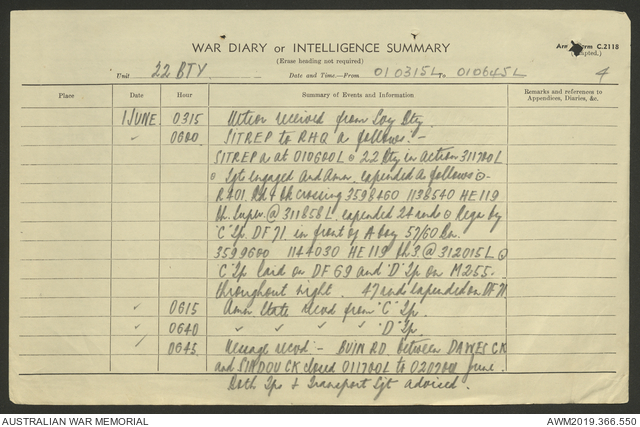 Army Form C.2118
WAR DIARY or INTELLIGENCE SUMMARY (Adapted.)
(Erase heading not required)
Unit 22 BTY Date and Time.—From 010315L To 010645L 4
Place Date Hour Summary of Events and Information Remarks and references to
Appendices, Diaries, &c.
1 JUNE 0315 received from Bty.
" 0600 SITREP to RHQ as follows :-
SITREP as at 010600L 22 Bty in action 311700L
Tgt engaged and Ammn. expended as follows
R401. Rd & Rk crossing 3598460 1138540 HE 119
@ 311858L expended 24 rnds Regd by
'C' Tp. DF 71 in front of A Coy 57/60 Bn.
3599600 1144030 HE 119 Ch 3 @ 312015L
'C' Tp laid on DF 69 and 'D' Tp on M255
throughout night. 47 rnds expended on DF 71
" 0615 Ammn State recvd from 'C' Tp.
" 0640 " " " " 'D' Tp.
" 0645 Message recvd - BUIN RD between DAWES CK
and SINDOU CK closed 011700L to 020700 June.
Both Tps & Transport Sgt advised.
AUSTRALIAN WAR MEMORIAL AWM2019.366.550